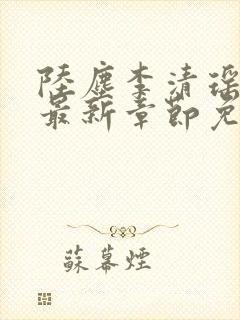 陸塵李清瑤
最新章節免
蘇幕煙